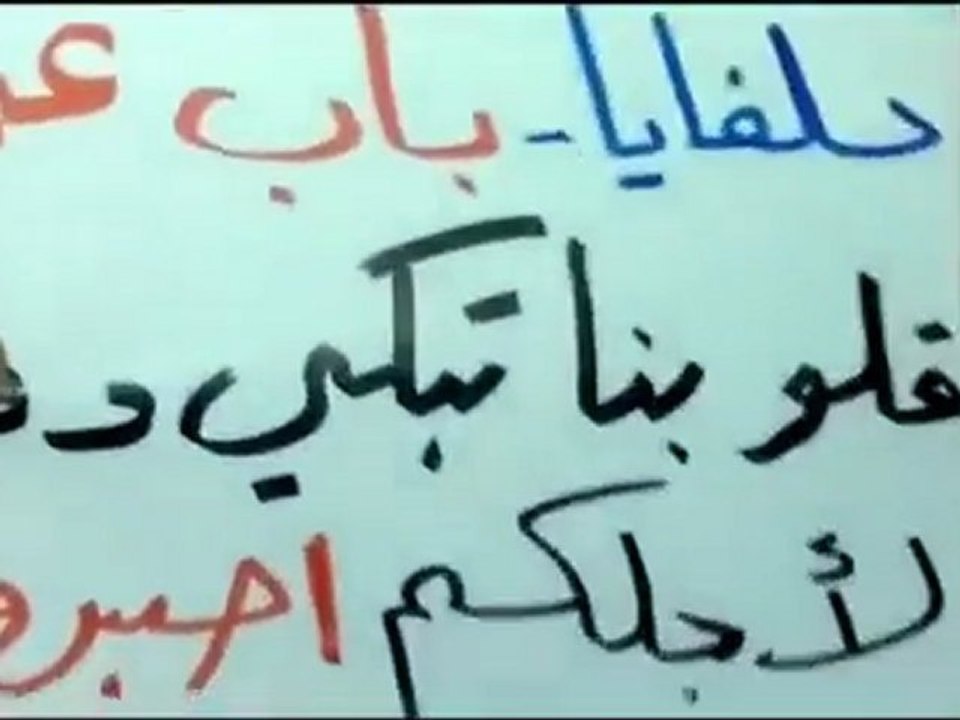 حلفايا - باب
قلوبنا تبكي
لأجلكم اصبرو